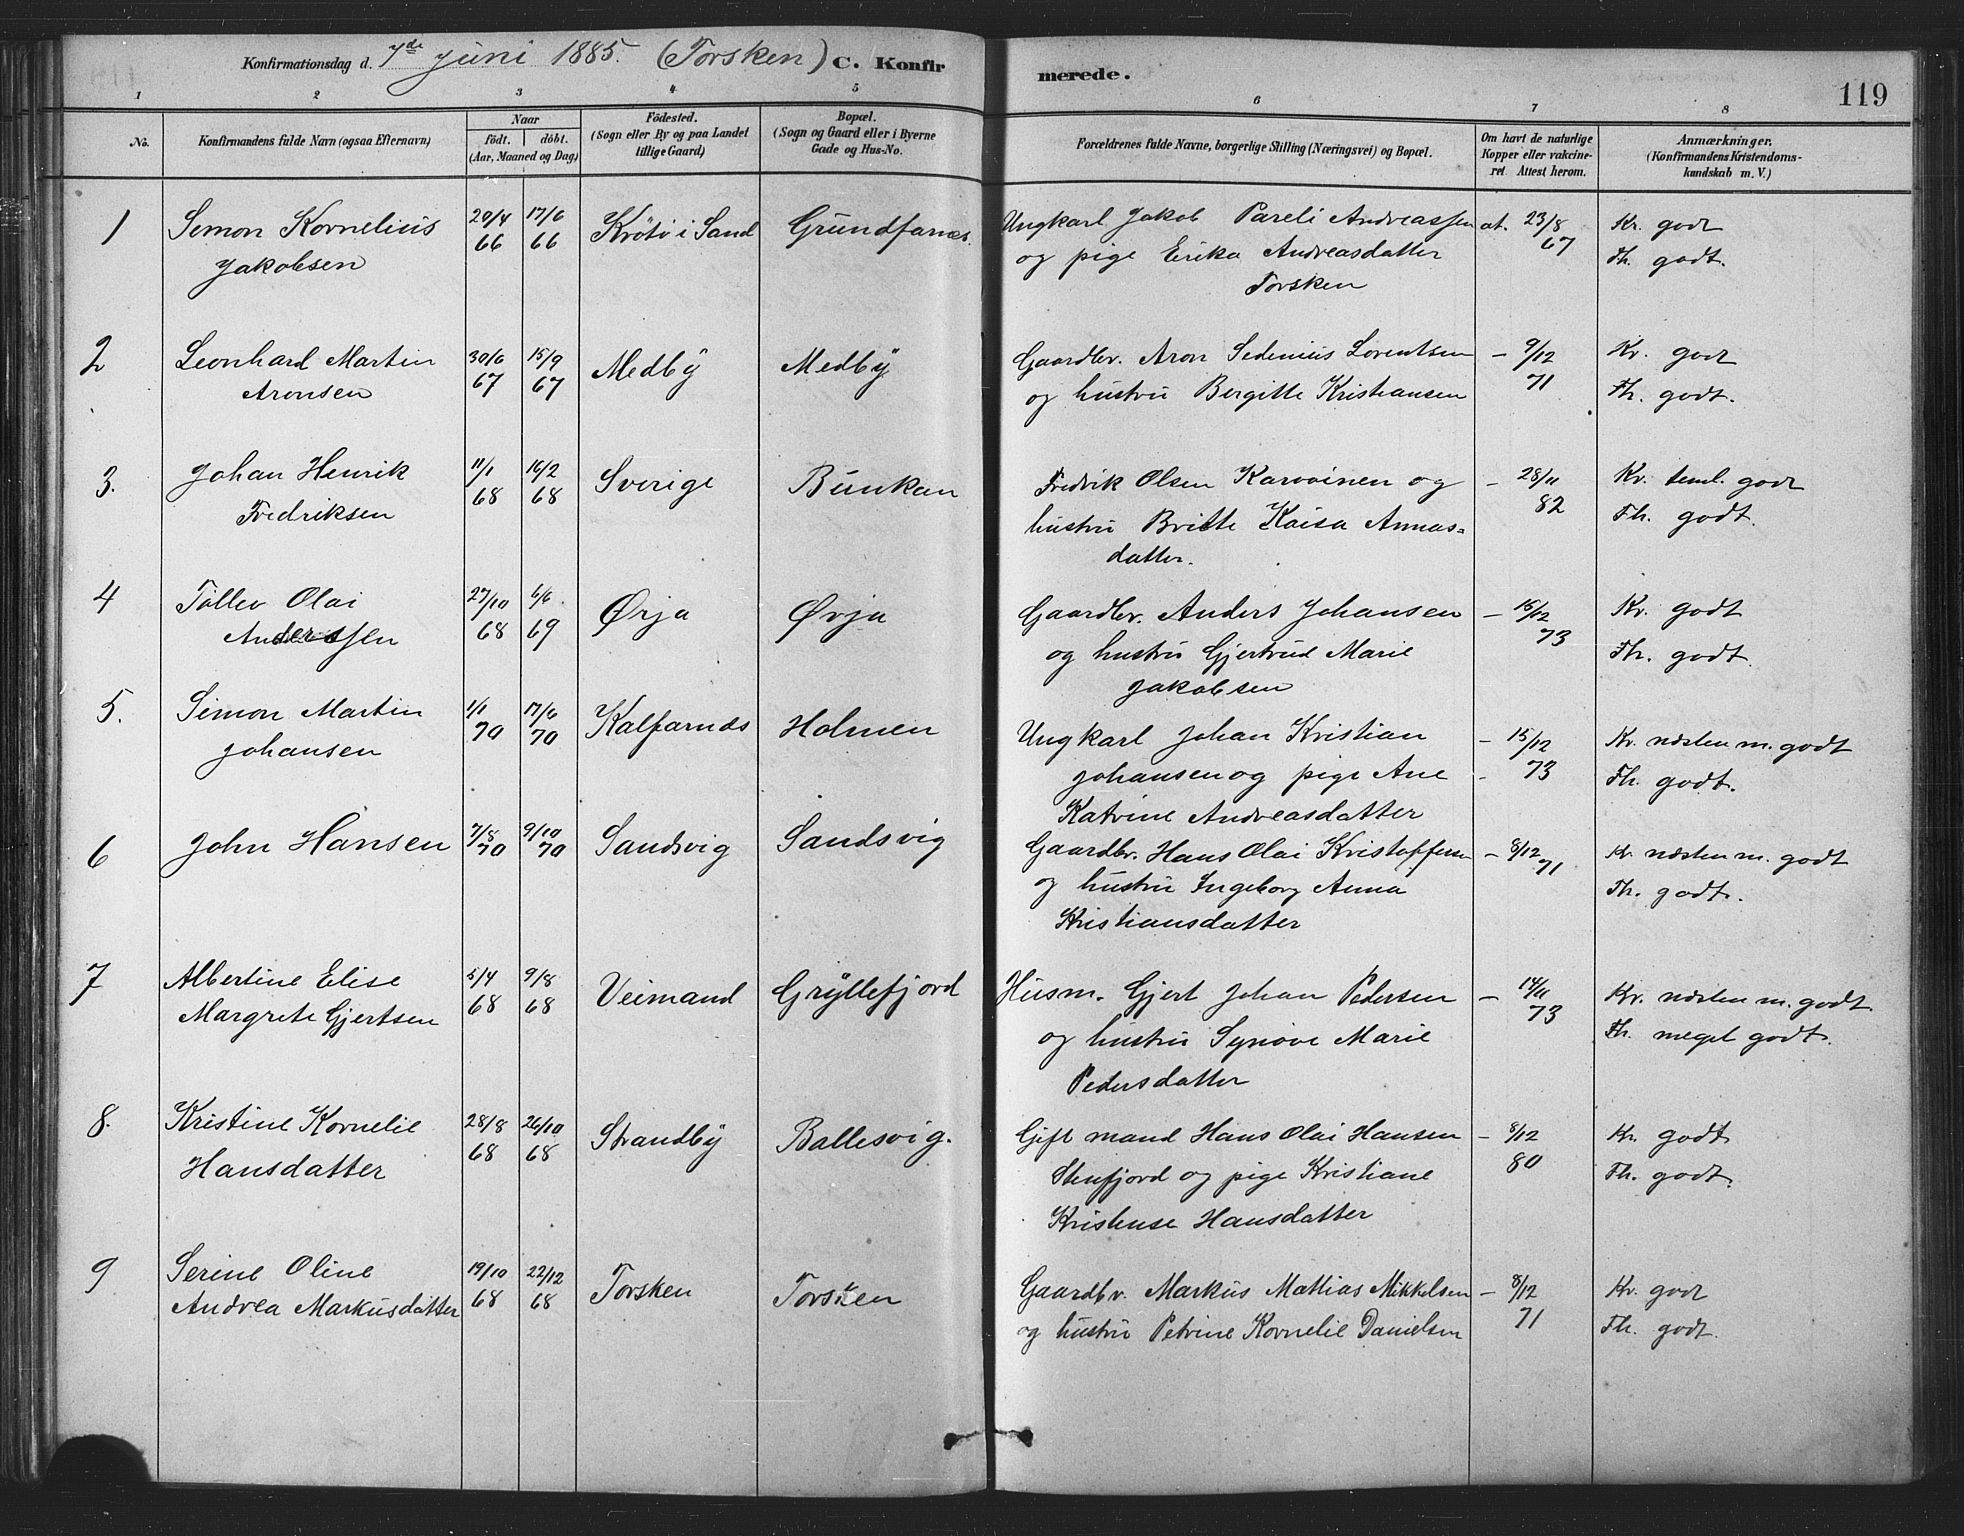 Konfirmationsdag d. 7de Juni 1885. (Torsken) C. Konfirmerede. 119
1 2 3 4 5 6 7 8
No.
Konfirmandens fulde Navn (ogsaa Efternavn)
Naar
født. | døbt.
(Aar, Maaned og Dag)
Fødested.
(Sogn eller By og paa Landet
tillige Gaard)
Bopæl.
(Sogn og Gaard eller i Byerne
Gade og Hus-No.
Forældrenes fulde Navne, borgerlige Stilling (Næringsvei) og Bopæl.
Om havt de naturlige
Kopper eller vakcine-
ret. Attest herom.
Anmærkninger.
(Konfirmandens Kristendoms-
kundskab m. V.)
1 Simon Kornelius 20/4 17/6 Krötö i Sand Grundfarnes. Ungkarl Jakob Pareli Andreassen at. 23/8 Kr. godt
Jakobsen 66 66 og pige Erika Andreasdatter 67 Th. godt.
Torsken
2 Leonhard Martin 30/6 15/9 Medby Medby Gaardbr. Aron Sedenius Lorentsen - 9/12 Kr. godt
Aronsen 67 67 og hustru Bergitte Kristiansen 71 Th. godt.
3. Johan Henrik 11/1 16/2 Sverige Bunkan Fredrik Olsen Karvoinen og - 28/11 Kr. teml. godt
Fredriksen 68 68 hustru Britte Kaisa Annas= 82 Th. godt.
datter.
4 Tollev Olai 27/10 6/6 Ørja Ørja Gaardbr. Anders Johansen - 15/12 Kr. godt
Anderssen 68 69 og hustru Gjertrud Marie 73 Th. godt.
Jakobsen
5. Simon Martin 1/1 17/6 Kalfarnes Holmen Ungkarl Johan Kristian - 15/12 Kr. næsten m. godt
Johansen 70 70 Johansen og pige Ane 73 Th. godt.
Katrine Andreasdatter
6 John Hansen 7/8 70 9/10 70 Sandsvig Sandsvig Gaardbr. Hans Olai Kristoffersen - 8/12 71 Kr. næsten m. godt
og hustru Ingeborg Anna Th. godt.
Kristiansdatter
7 Albertine Elise 5/4 9/8 Veimand Gryllefjord Husm. Gjert Johan Pedersen - 14/11 Kr. næsten m. godt.
Margrete Gjertsen 68 68 og hustru Synove Marie 73 Th. meget godt.
Pedersdatter
8. Kristine Kornelie 28/8 26/10 Strandby Ballesvig. Gift mand Hans Olai Hansen - 8/12 Kr. godt
Hansdatter 68 68 Stenfjord og pige Kristiane 80 Th. godt.
Hansdatter
9 Serine Oline 19/10 22/12 Torsken Torsken Gaardbr. Markus Mathias Mikkelsen - 8/12 Kr. godt
Andrea Markusdatter 68 68 og hustru Petrine Kornelie Danielsen 71 Th. godt.